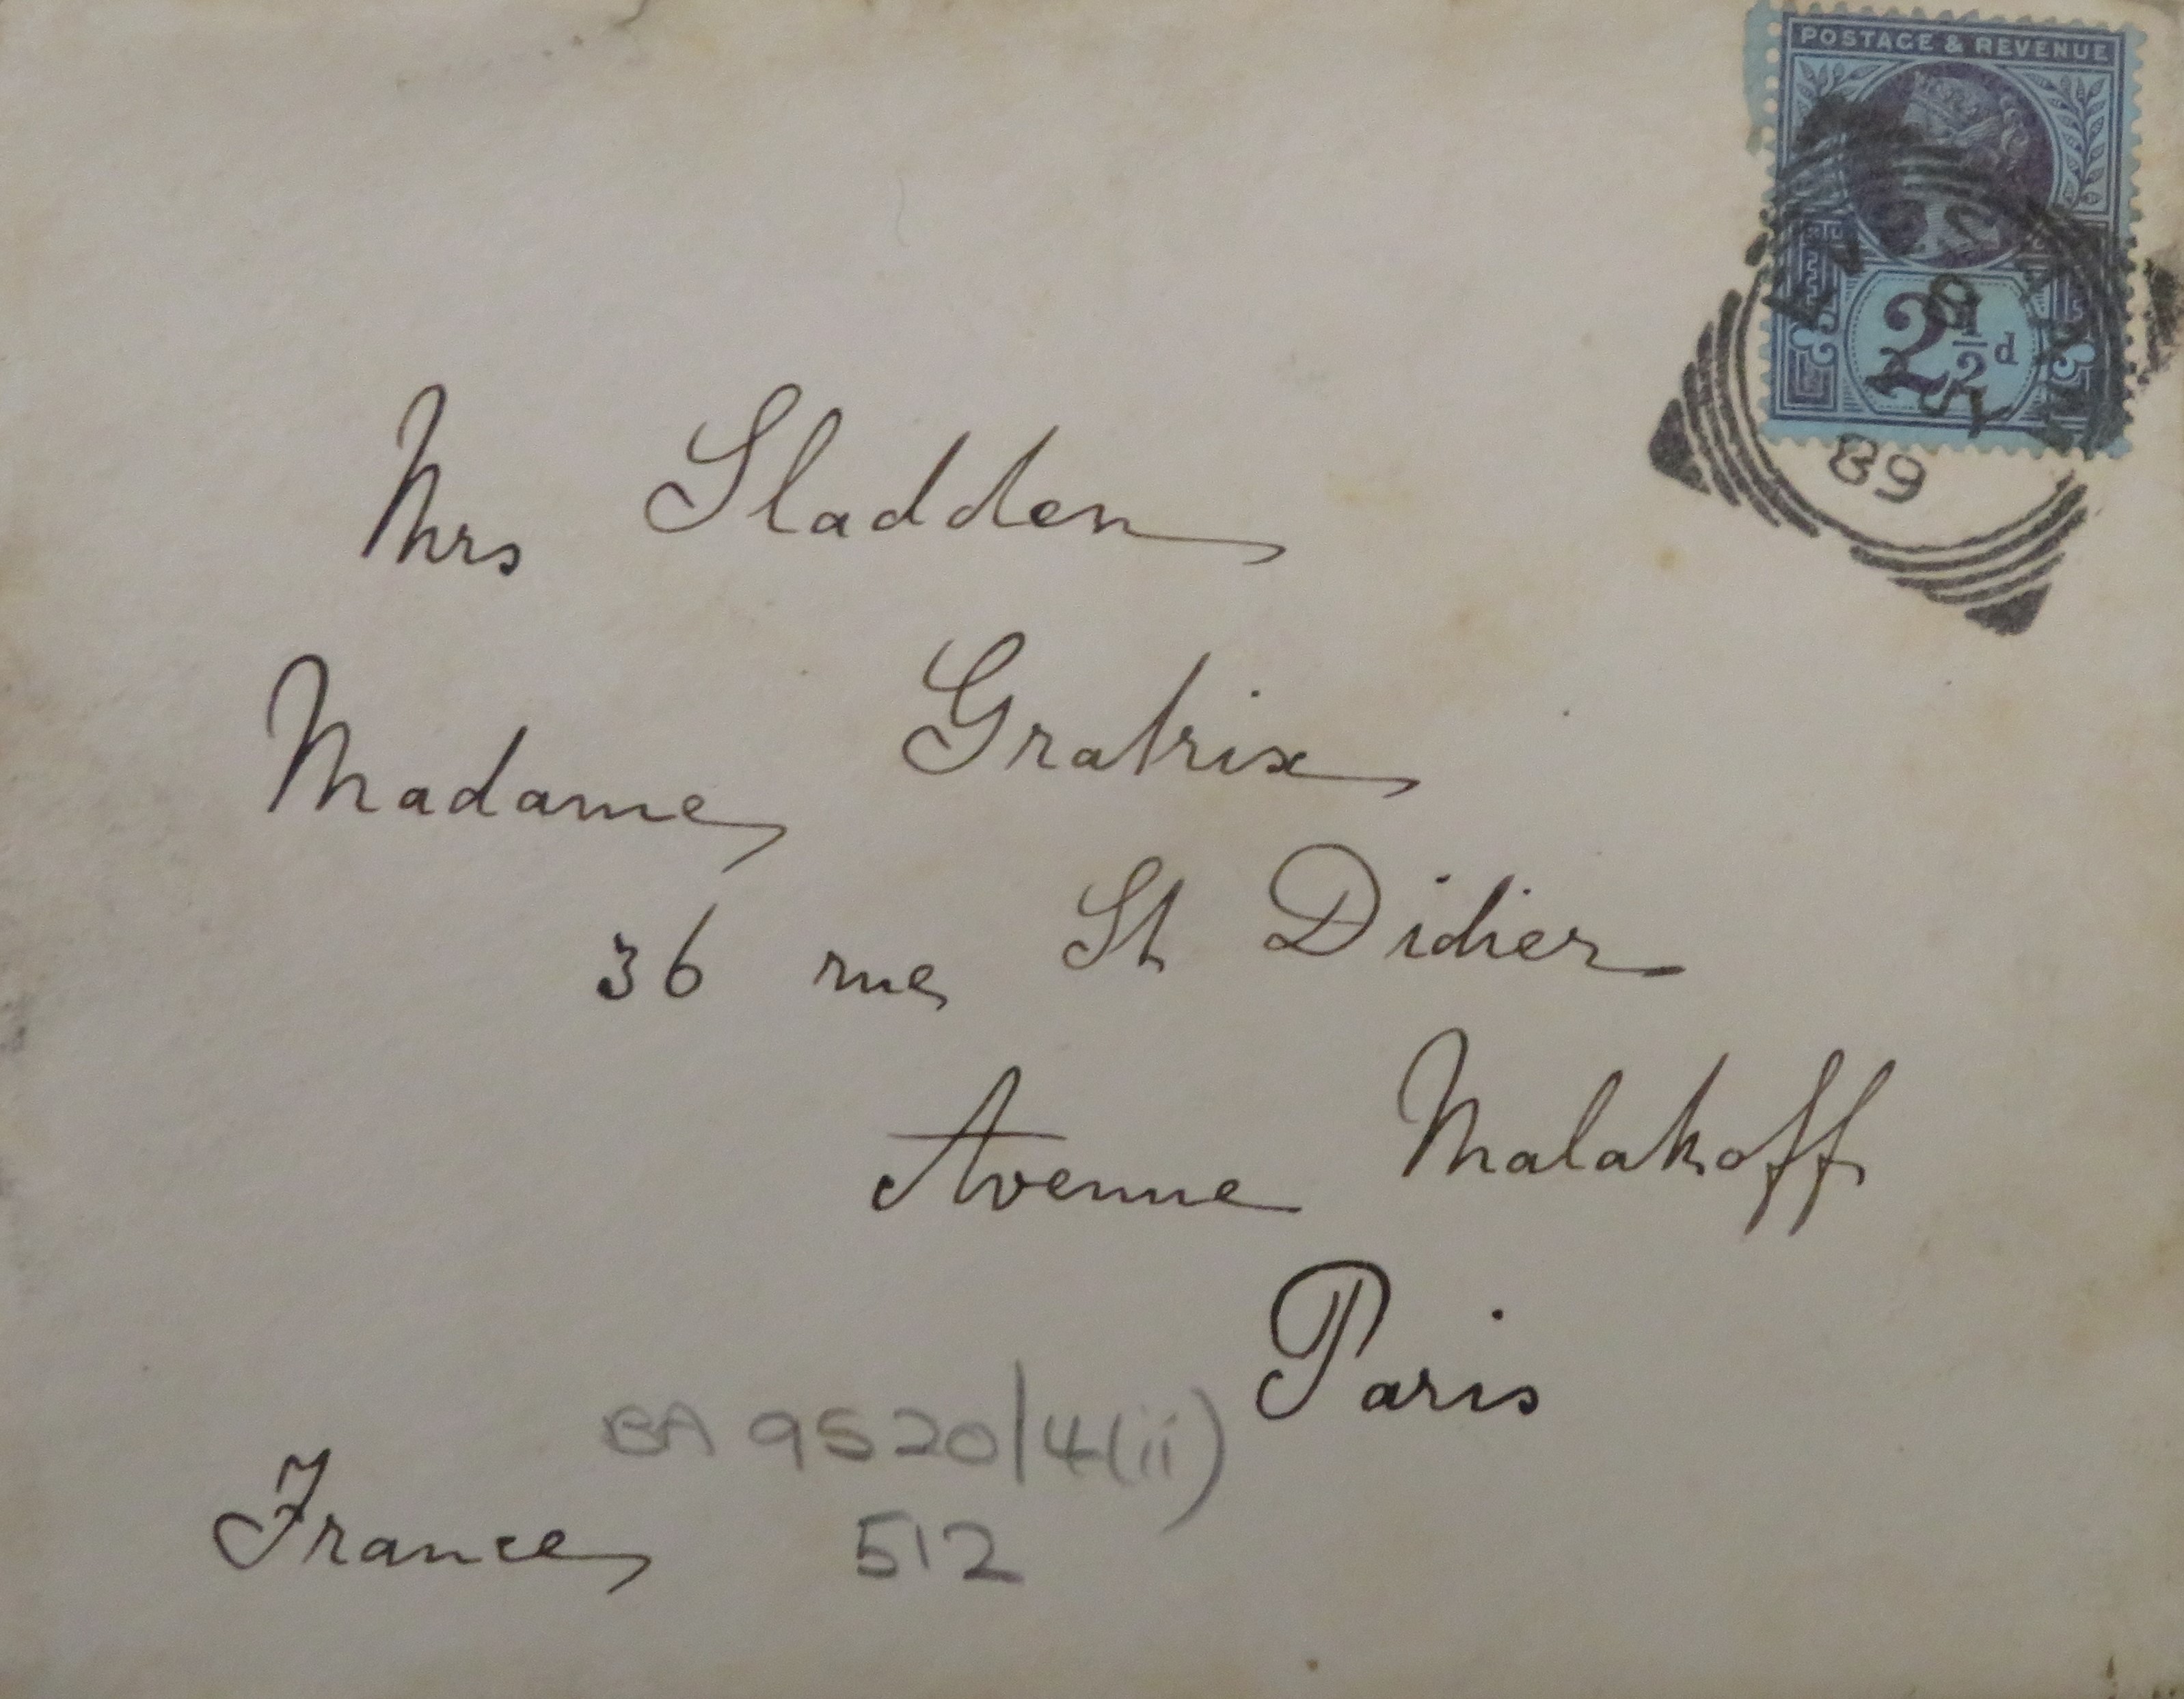 POSTAGE & REVENUE
2½d
89
Mrs Sladden
Madame Gratrix
36 rue St Didier
Avenue Malakoff
Paris
BA 9520/4(ii)
France 512